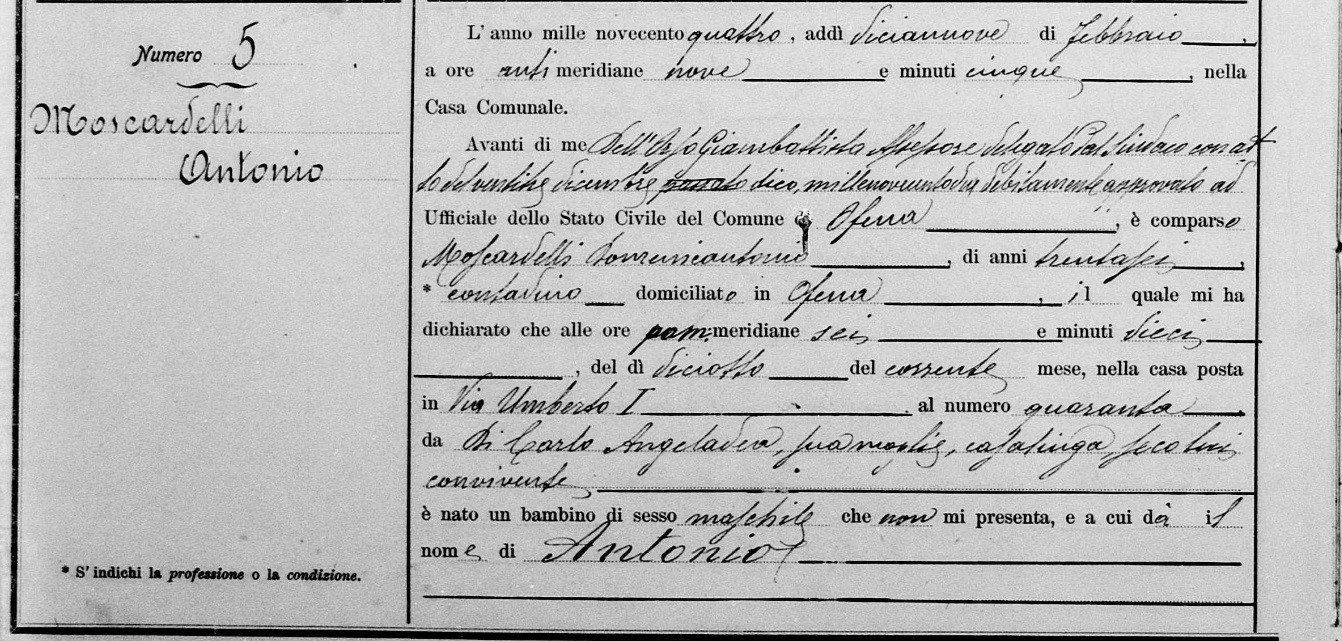 Numero 5
Moscardelli
Antonio
* S'indichi la professione o la condizione.
L'anno mille novecento quattro, addì diciannove di febbraio,
a ore anti meridiane nove e minuti cinque, nella
Casa Comunale.
Avanti di me Dell'Orso Giambattista Assessore delegato dal Sindaco con at
to del ventitre dicembre passato dico, millenovecentodue debitamente approvato ad
Ufficiale dello Stato Civile del Comune di Ofena, è comparso
Moscardelli Domenicantonio, di anni trentasei,
* contadino domiciliato in Ofena, il quale mi ha
dichiarato che alle ore pom. meridiane sei e minuti dieci
, del dì diciotto del corrente mese, nella casa posta
in Via Umberto I al numero quaranta,
da Di Carlo Angeladea, sua moglie, casalinga, seco lui
convivente
è nato un bambino di sesso maschile che non mi presenta, e a cui dà il
nome di Antonio